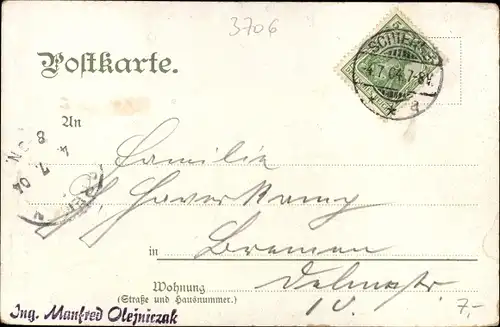 3706
Postkarte.
SCHIERKE
4.7.04.7-8V.
a
An
Familie
H. Haverkamp
in Bremen
Wohnung Delmestr.
(Straße und Hausnummer.) 10.
7,-
8
4. 7. 04
Ing. Manfred Olejniczak